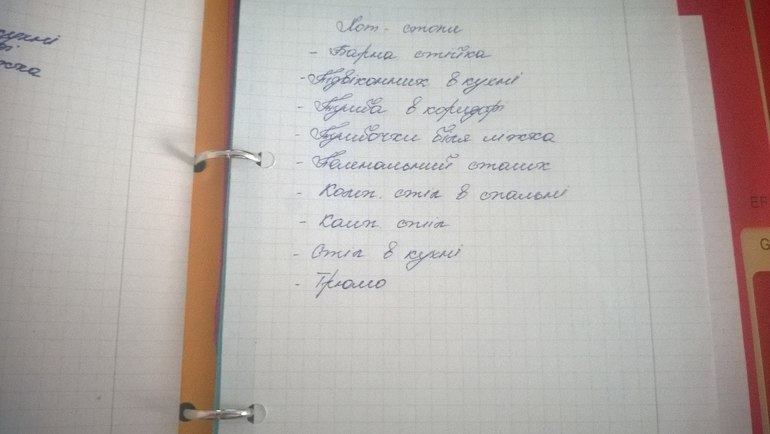 кухні
жка
Хот-споти
- Барна стійка
- Підвіконник в кухні
- Тумба в коридорі
- Тумбочки біля ліжка
- Пеленальний столик
- Комп. стіл в спальні
- Комп. стіл
- Стіл в кухні
- Трюмо
EF
G